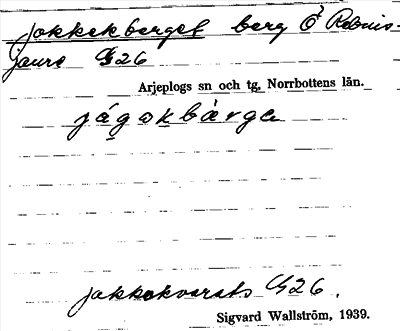 Jakkekberget berg Ö Rebnis-
jaure G26
Arjeplogs sn och tg, Norrbottens län.
jágəkbàrga
jakkekvarats G26.
Sigvard Wallström, 1939.